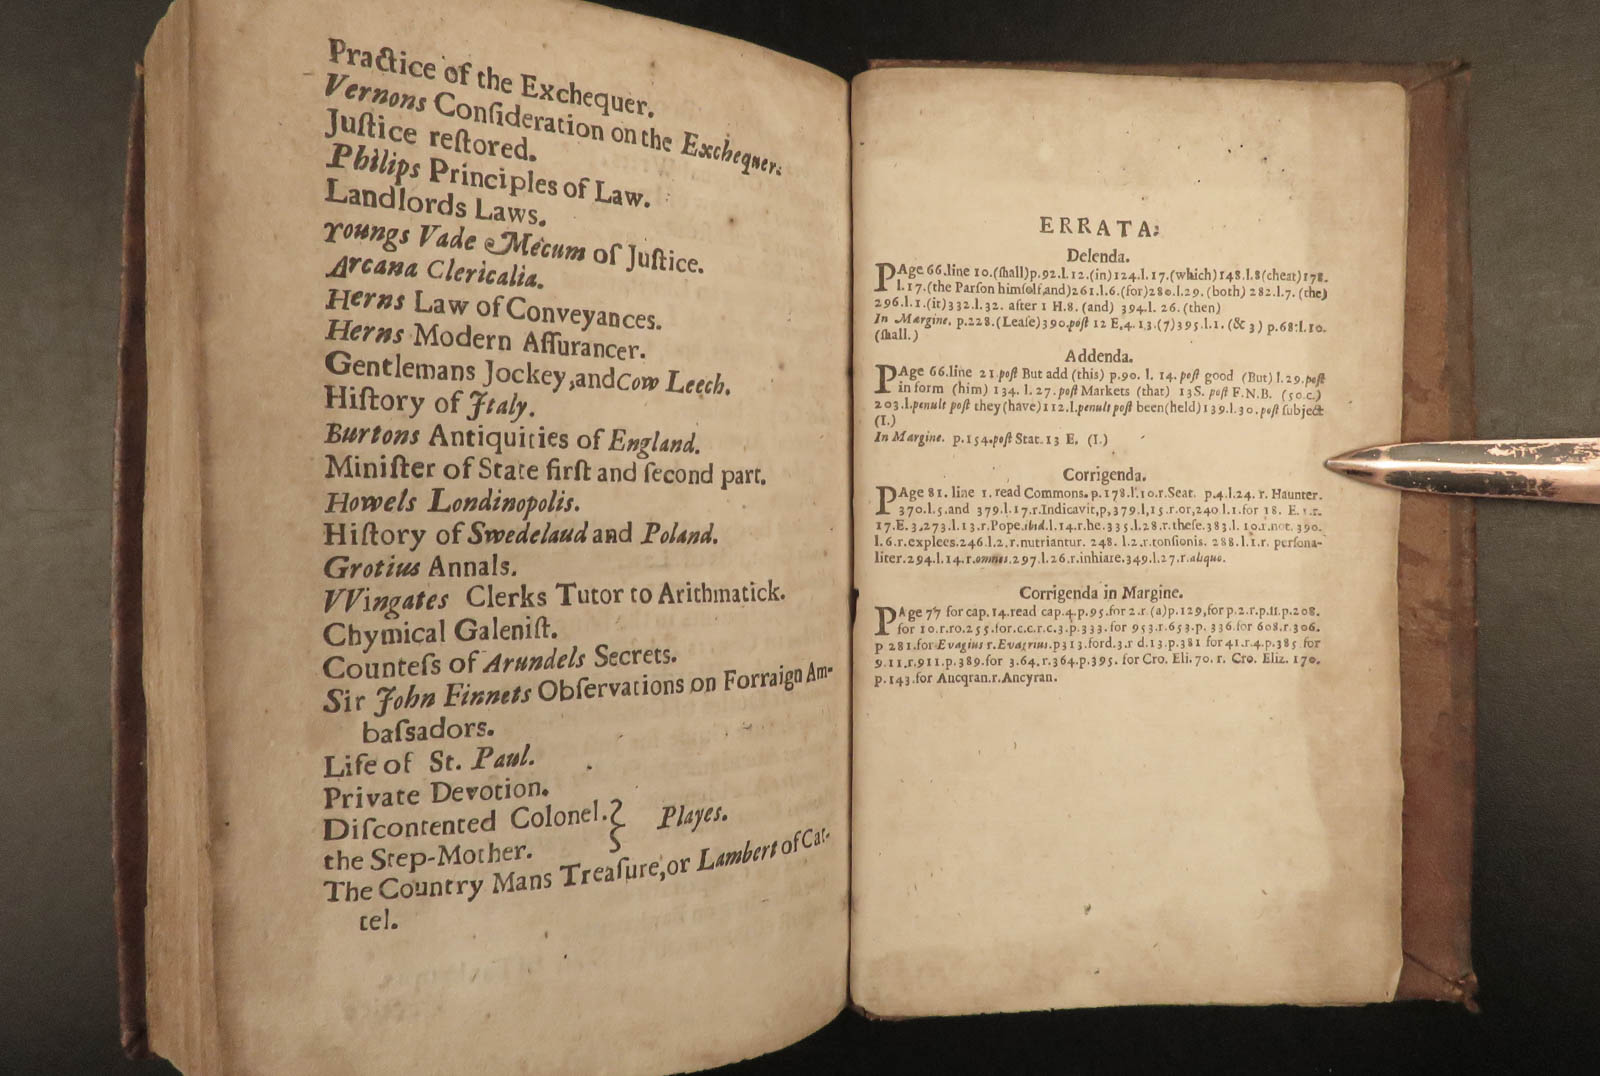 Practice of the Exchequer.
Vernons Conſideration on the Exchequer.
Juſtice reſtored.
Philips Principles of Law.
Landlords Laws.
Youngs Vade Mecum of Juſtice.
Arcana Clericalia.
Herns Law of Conveyances.
Herns Modern Aſſurancer.
Gentlemans Jockey, and Cow Leech.
Hiſtory of Italy.
Burtons Antiquities of England.
Miniſter of State firſt and ſecond part.
Howels Londinopolis.
Hiſtory of Swedelaud and Poland.
Grotius Annals.
VVingates Clerks Tutor to Arithmatick.
Chymical Galeniſt.
Counteſs of Arundels Secrets.
Sir John Finnets Obſervations on Forraign Am-
baſſadors.
Life of St. Paul.
Private Devotion.
Diſcontented Colonel. } Playes.
the Step-Mother.
The Country Mans Treaſure, or Lambert of Cat-
tel.
ERRATA:
Delenda.
PAge 66.line 10.(ſhall)p.92.l.12.(in)124.l.17.(which)148.l.8(cheat)178.
l.17.(the Parſon himſolf,and)261.l.6.(for)280.l.29.(both) 282.l.7.(the)
296.l.1.(it)332.l.32. after 1 H.8. (and) 394.l. 26.(then)
In Margine. p.228.(Leaſe)390.poſt 12 E.4.13.(7)395.l.1.(&3) p.68.l.10.
(ſhall.)
Addenda.
PAge 66.line 21.poſt But add (this) p.90. l. 14.poſt good (But) l.29.poſt
in form (him) 134. l.27.poſt Markets (that) 135. poſt F.N.B. (50.c.)
203.l.penult poſt they(have)112.l.penult poſt been(held)139.l.30.poſt ſubject
(I.)
In Margine. p.154.poſt Stat.13 E. (I.)
Corrigenda.
PAge 81. line 1. read Commons. p.178.l.10.r.Seat. p.4.l.24. r. Haunter.
370.l.5.and 379.l.17.r.Indicavit,p,379.l,15.r.or,240.l.1.for 18. E.1.r.
17.E.3,273.l.13.r.Pope.ibid.l.14.r.he.335.l.28.r.theſe.383.l. 10.r.not. 390.
l.6.r.explees.246.l.2.r.nutriantur. 248. l.2.r.tonſionis. 288.l.1.r. perſona-
liter.294.l.14.r.omnes.297.l.26.r.inhiare.349.l.27.r.aliquo.
Corrigenda in Margine.
PAge 77 for cap.14.read cap.4.p.95.for 2.r.(a)p.129,for p.2.r.p.11.p.208.
for 10.r.ro.255.for.c.c.r.c.3.p.333.for 953.r.653.p. 336.for 608.r.306.
p 281.for Evagius r.Evagrius.p313.ford.3.r d.13.p.381 for41.r.4.p.385 for
9.11.r.911.p.389.for 3.64.r.364.p.395. for Cro. Eli.70. r. Cro. Eliz. 170.
p.143.for Aucqran.r.Ancyran.